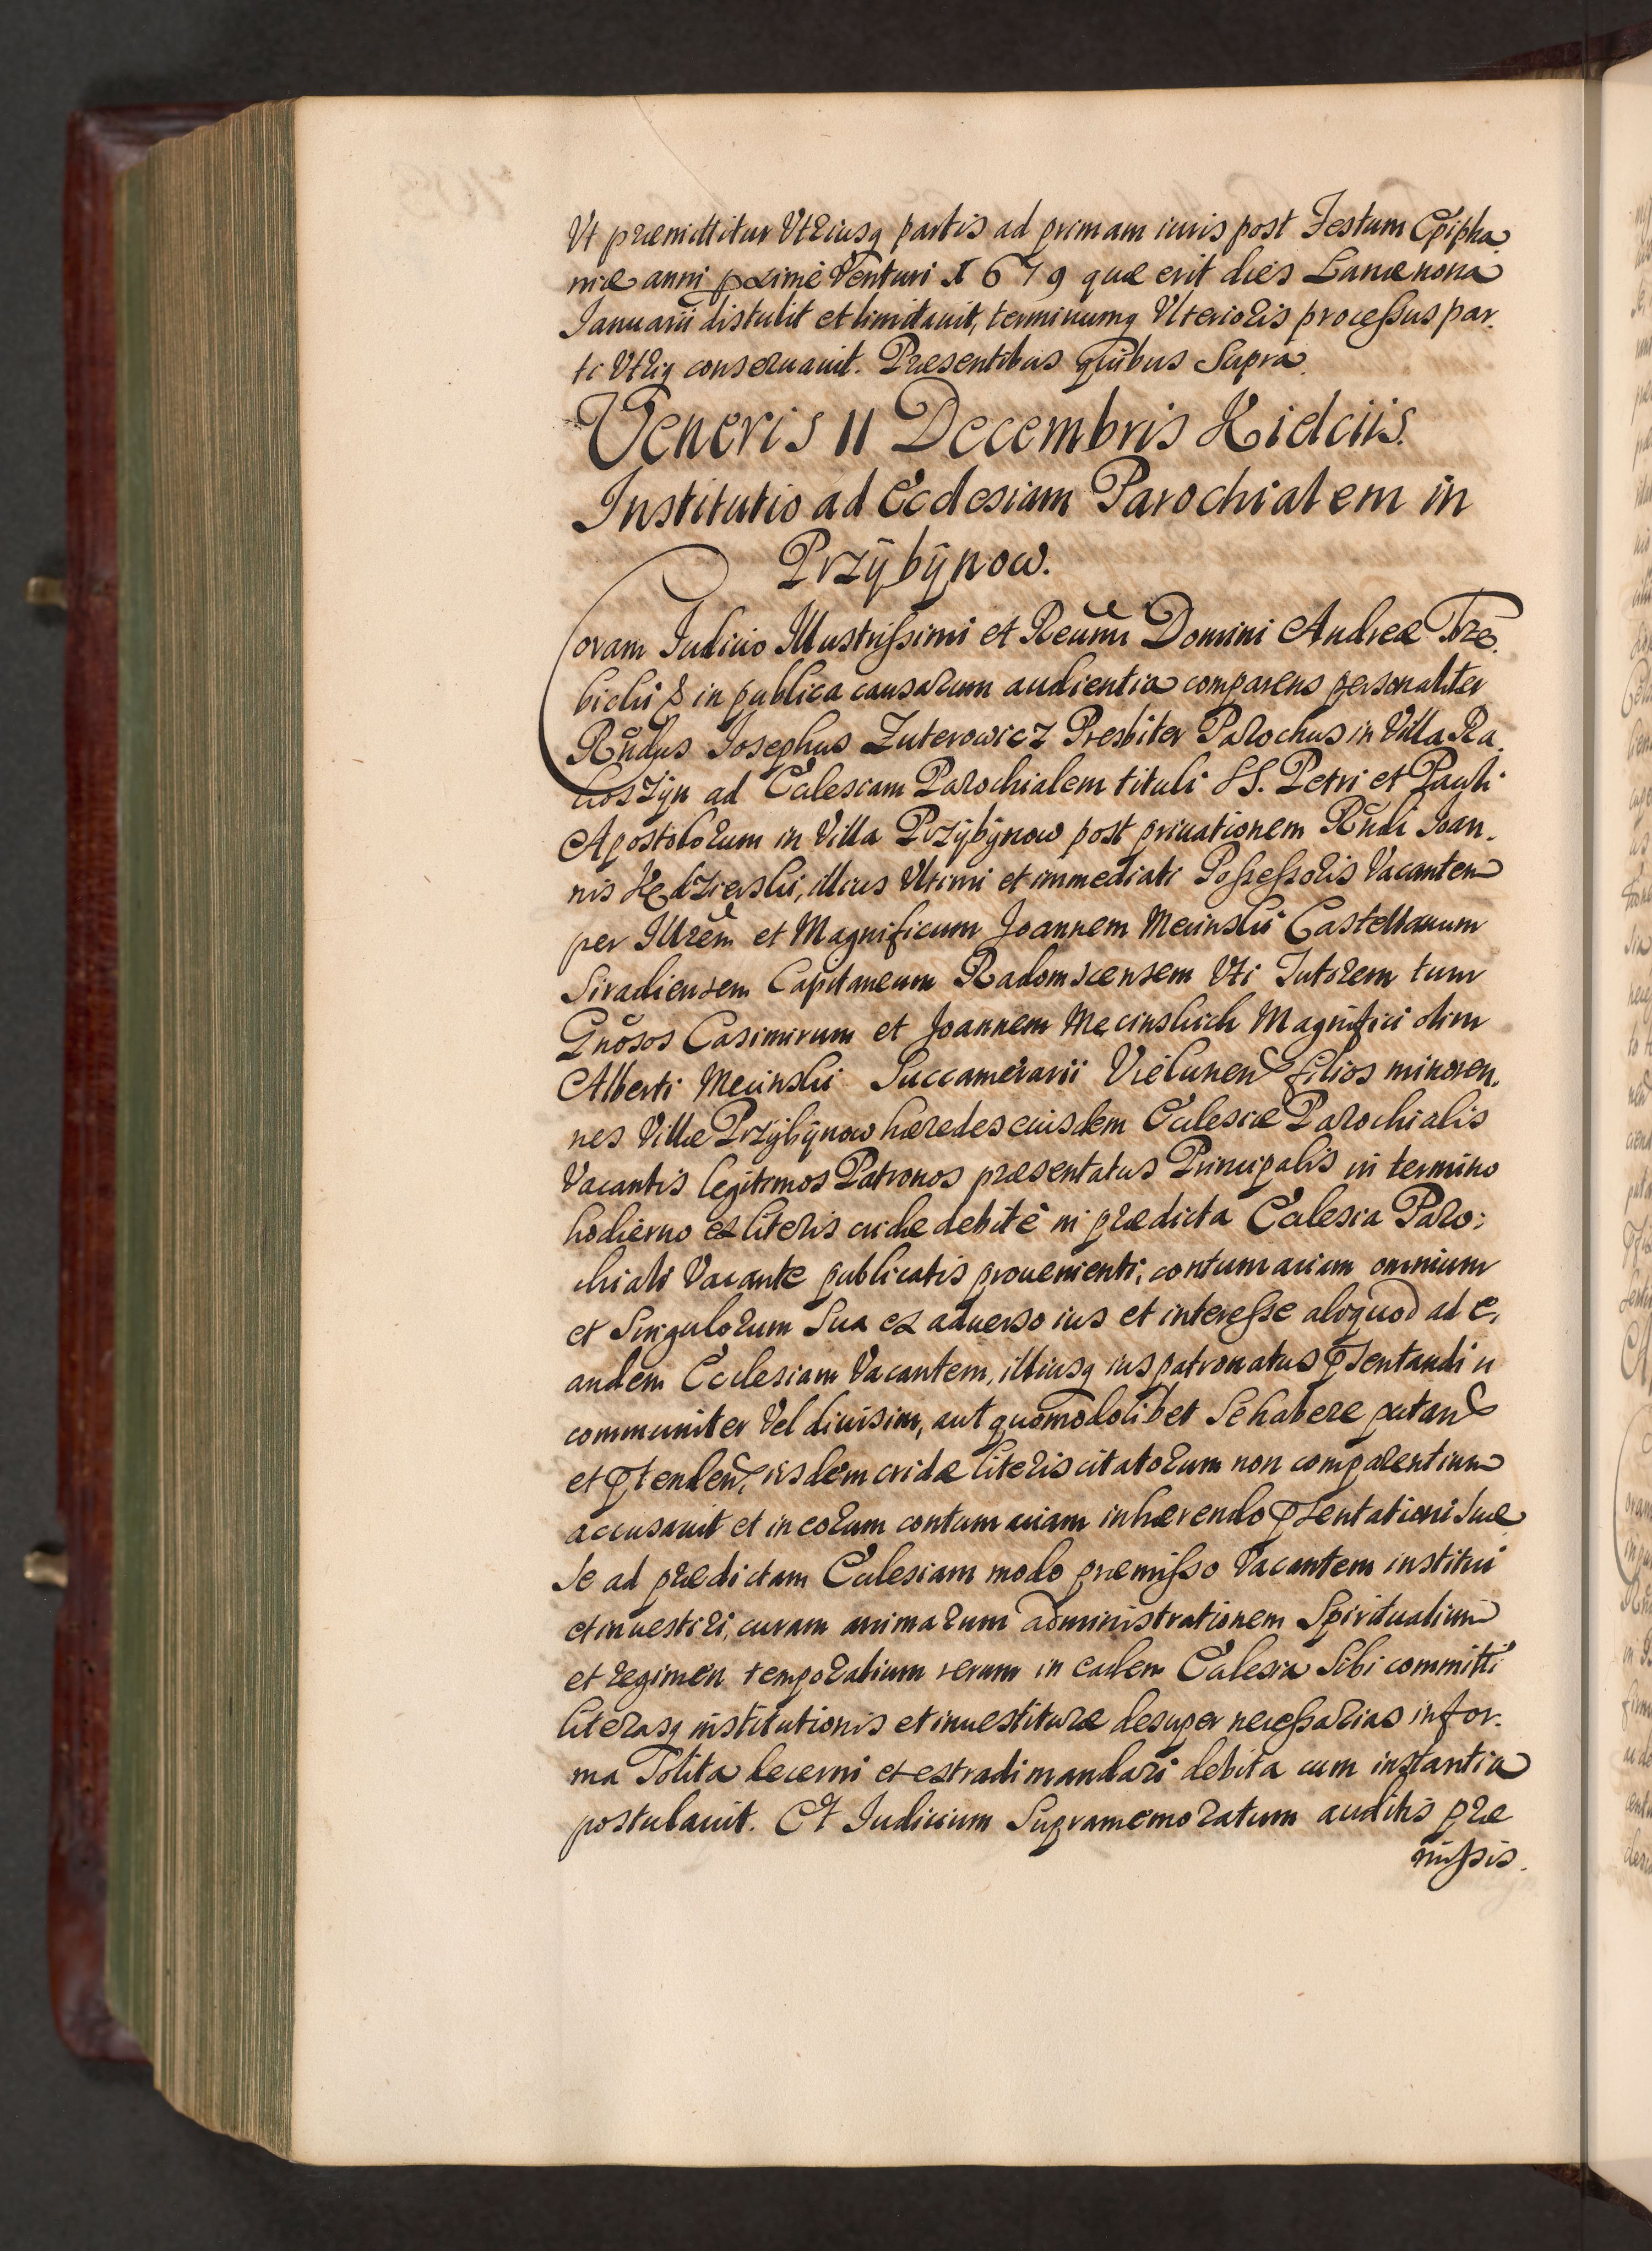 Vt præmittitur Vtriusq partis ad primam iuris post Festum Epipha
niæ anni proximè Venturi 1679 quæ erit dies Lunæ nona
Januarii distulit et limitauit, terminumq Vlterioris processus par.
ti Vtriq conseruauit. Præsentibus quibus Supra.
Veneris 11 Decembris Kielciis.
Institutio ad Ecclesiam Parochialem in
Przÿbÿnow.
Coram Judicio Illustrissimi et Reũmi Domini Andreæ Trze.
bicki & in publica causarum audientia comparens personaliter
Rñdus Josephus Zuterowicz Presbiter Parochus in Villa Ra.
koszÿn ad Eccleſiam Parochialem tituli SS. Petri et Pauli
Apostolorum in Villa Przÿbÿnow post priuationem Rñdi Joan.
nis Kędzierski, illius Vltimi et immediati Possessoris Vacantem
per Illrẽm et Magnificum Joannem Mecinski Castellanum
Siradiensem Capitaneum Radomscensem Vti Tutorem tum
Gñosos Casimirum et Joannem Mecinskich Magnifici olim
Alberti Mecinski Succamerarii Vielunen filios minoren.
nes Villæ Przÿbÿnow hæredes eiusdem Ecclesiæ Parochialis
Vacantis legitimos Patronos præsentatus Principalis in termino
hodierno ex literis cridæ debitè in prædicta Ecclesia Paro:
chiali Vacante publicatis prouenienti, contumaciam omnium
et Singulorum Sua ex aduerso ius et interesse aliquod ad e.
andem Ecclesiam Vacantem, illiusq ius patronatus pſentandi u
communiter Vel diuisim, aut quomodolibet Se habere putan
et ptenden, iisdem cridæ literis citatorum non comparentium
accusauit et in eorum contumaciam inhærendo pſentationi suæ
se ad prædictam Ecclesiam modo præmisso Vacantem institui
et inuestiri, curam animarum administrationem Spiritualium
et regimen temporalium rerum in eadem Ecclesia Sibi committi
literasq institutionis et inuestituræ desuper necessarias in for.
ma Solita decerni et extradi mandari debita cum instantia
postulauit. Et Judicium Supramemoratum auditis præ
missis.